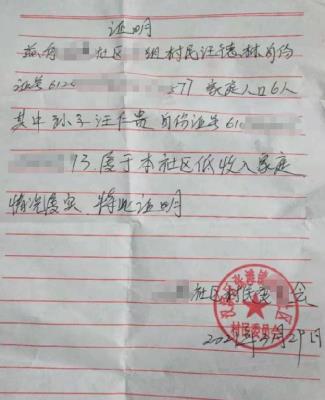 证明
兹有 社区 组村民汪德林身份
证号612 577 家庭人口6人
其中孙子汪仁贵身份证号61
93.属于本社区低收入家庭
情况属实 特此证明
社区村民委 会
村民委员会
202 年 月29日